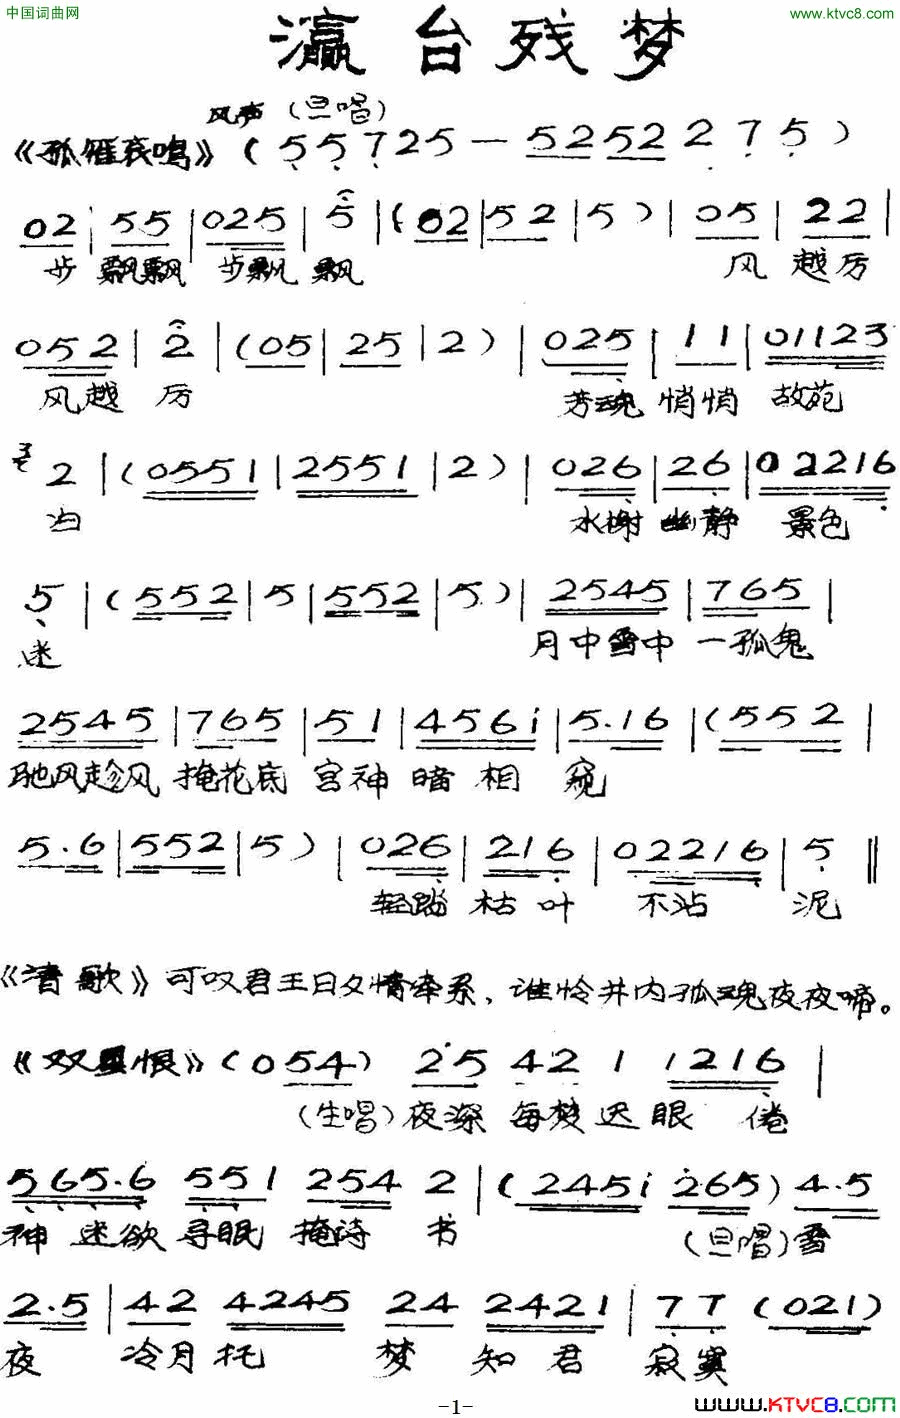 中国词曲网 www.ktvc8.com
瀛台残梦
风声（旦唱）
《孤雁哀鸣》（5 5 7 2 5 — 5 2 5 2 2 7 5）
02 | 55 | 025 | 5 | （02 | 52 | 5） | 05 | 22 |
步 飘飘 步飘 飘 风 越厉
052 | 2 | （05 | 25 | 2） | 025 | 11 | 01123
风越 厉 芳魂 悄悄 故苑
2 | （0551 | 2551 | 2） | 026 | 26 | 02216
归 水榭 幽静 景色
5 | （552 | 5 | 552 | 5） | 2545 | 765 |
迷 月中雪中 一孤鬼
2545 | 765 | 51 | 4561 | 5.16 | （552 |
驰风趁风 掩花底 宫神 暗 相 窥
5.6 | 552 | 5） | 026 | 216 | 02216 | 5 ‖
轻踏 枯 叶 不沾 泥
《清歌》可叹君王日夕情牵系，谁怜井内孤魂夜夜啼。
《双星恨》（054） 25 42 1 1216 |
（生唱）夜深 每梦 迟 眼 倦
565.6 551 254 2 | （2451 265） 4.5
神 迷欲 寻眠 掩诗 书 （旦唱）雪
2.5 | 42 4245 24 2421 | 77 （021）
夜 冷月 托 梦 知 君 寂寞
-1-
www.KTVC8.COM